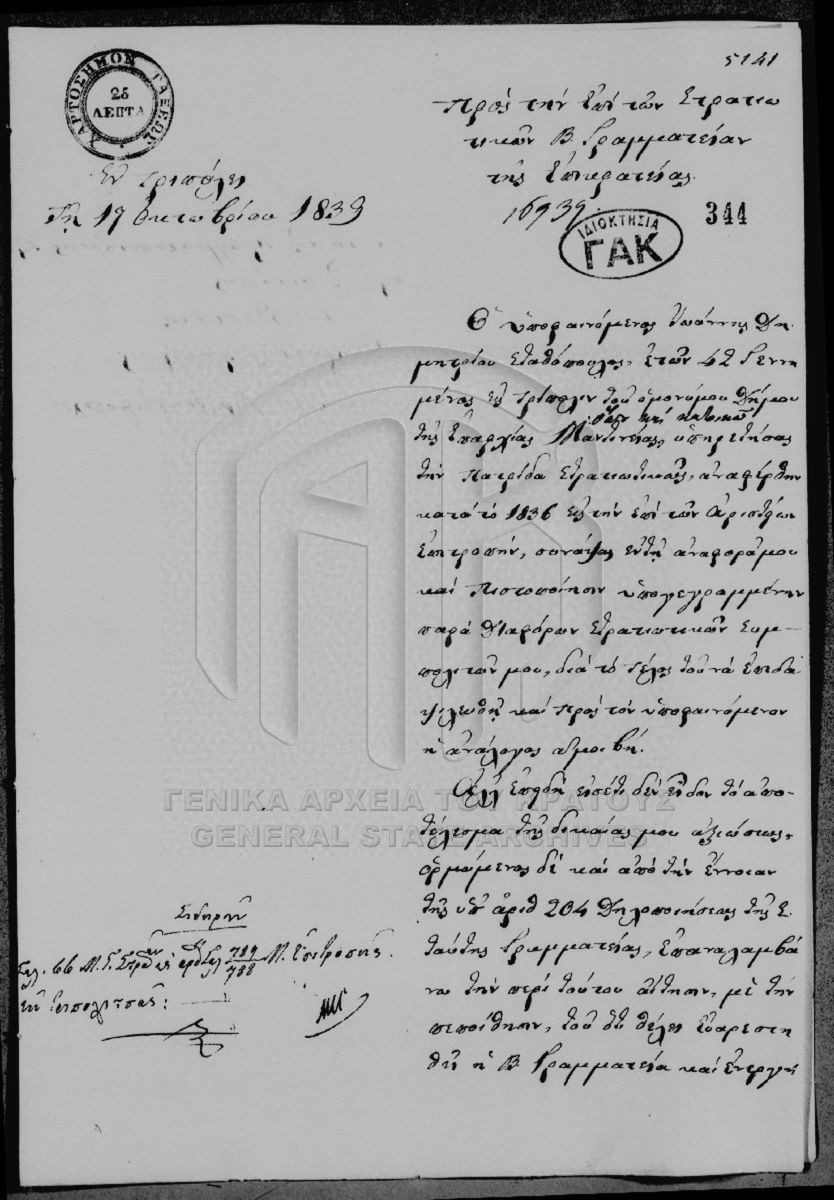 ΧΑΡΤΟΣΗΜΟΝ ΤΑΞΕΩΣ
25
ΛΕΠΤΑ
5141
Πρὸς τὴν ἐπὶ τῶν Στρατιω
τικῶν Β. Γραμματείαν
τῆς Ἐπικρατείας.
Ἐν Τριπόλει
Τῇ 17 Ὀκτωβρίου 1839
16939
344
ΙΔΙΟΚΤΗΣΙΑ
ΓΑΚ
Ὁ ὑποφαινόμενος Ἰωάννης Δη-
μητρίου Σταθόπουλος, ἐτῶν 42 γεννη
μένος εἰς Τρίπολιν τοῦ ὁμονύμου Δήμου
καὶ κατοικῶν
τῆς Ἐπαρχίας Μαντινείας, ὑπηρετήσας
τὴν Πατρίδα στρατιωτικῶς, ἀναφέρθην
κατὰ τὸ 1836 εἰς τὴν ἐπὶ τῶν Ἀριστείων
ἐπιτροπὴν, συνάψας ἐν τῇ ἀναφορᾷ μου
καὶ Πιστοποίησιν ὑπογεγραμμένην
παρὰ διαφόρων στρατιωτικῶν συμ-
πολιτῶν μου, διὰ τὸ τέλος τοῦ νὰ ἐπιδα
ψιλευθῇ καὶ πρὸς τὸν ὑποφαινόμενον
ἡ ἀνάλογος ἀμοιβή.
Ἀλλ' ἐπειδὴ εἰσέτι δὲν εἶδον τὸ ἀπο-
τέλεσμα τῆς δικαίας μου ἀξιώσεως,
ὁρμώμενος δὲ καὶ ἀπὸ τὴν ἔννοιαν
τῆς ὑπ' ἀριθ 204 Δηλοποιήσεως τῆς Β.
ταύτης Γραμματείας, ἐπαναλαμβά
νω τὴν περὶ τούτου αἴτησιν, μὲ τὴν
πεποίθησιν, τοῦ ὅτι θέλει εὐαρεστη
θῆ ἡ Β. Γραμματεία καὶ ἐνεργήσ
Σιδηροῦν
66 Μ. Γ. 789/788 Μ. Ἐπιτροπῆς.
ἐκ Τριπολιτσᾶς:
ΓΕΝΙΚΑ ΑΡΧΕΙΑ ΤΟΥ ΚΡΑΤΟΥΣ
GENERAL STATE ARCHIVES